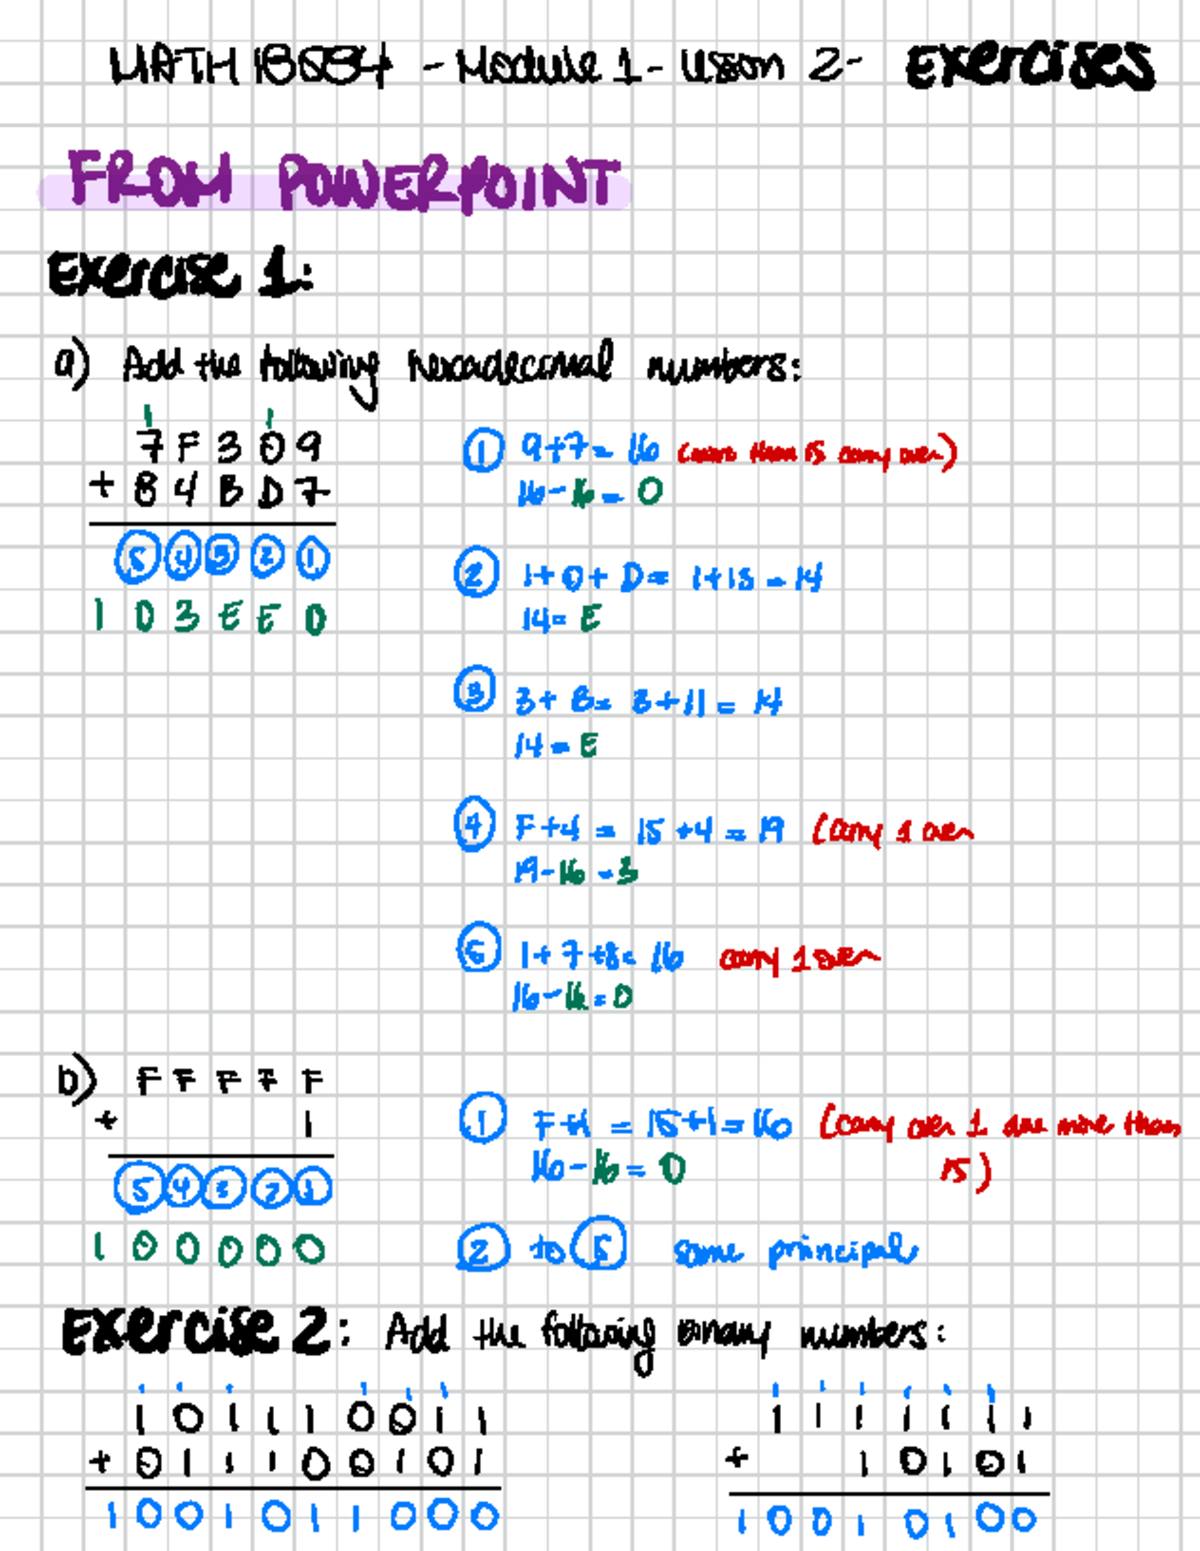 MATH 18584 - Module 1 - Lesson 2 - Exercises
FROM POWERPOINT
Exercise 1:
a) Add the following hexadecimal numbers:
1 1
7 F 3 0 9
+ 8 4 B D 7
5 4 3 2 1
1 0 3 E E 0
1 9+7= 16 (more than 15 carry over)
16-16= 0
2 1+0+D= 1+13=14
14= E
3 3+B= 3+11= 14
14= E
4 F+4 = 15+4=19 (carry 1 over
19-16=3
5 1+7+8= 16 carry 1 over
16-16=0
b) F F F F F
+ 1
5 4 3 2 1
1 0 0 0 0 0
1 F+1 = 15+1=16 (carry over 1 due more than
15)
16-16= 0
2 to 5 same principal
Exercise 2: Add the following binary numbers:
1 1 1 1 1 1
1 0 1 1 1 0 0 1 1
+ 0 1 1 1 0 0 1 0 1
1 0 0 1 0 1 1 0 0 0
1 1 1 1 1 1
1 1 1 1 1 1 1
+ 1 0 1 0 1
1 0 0 1 0 1 0 0